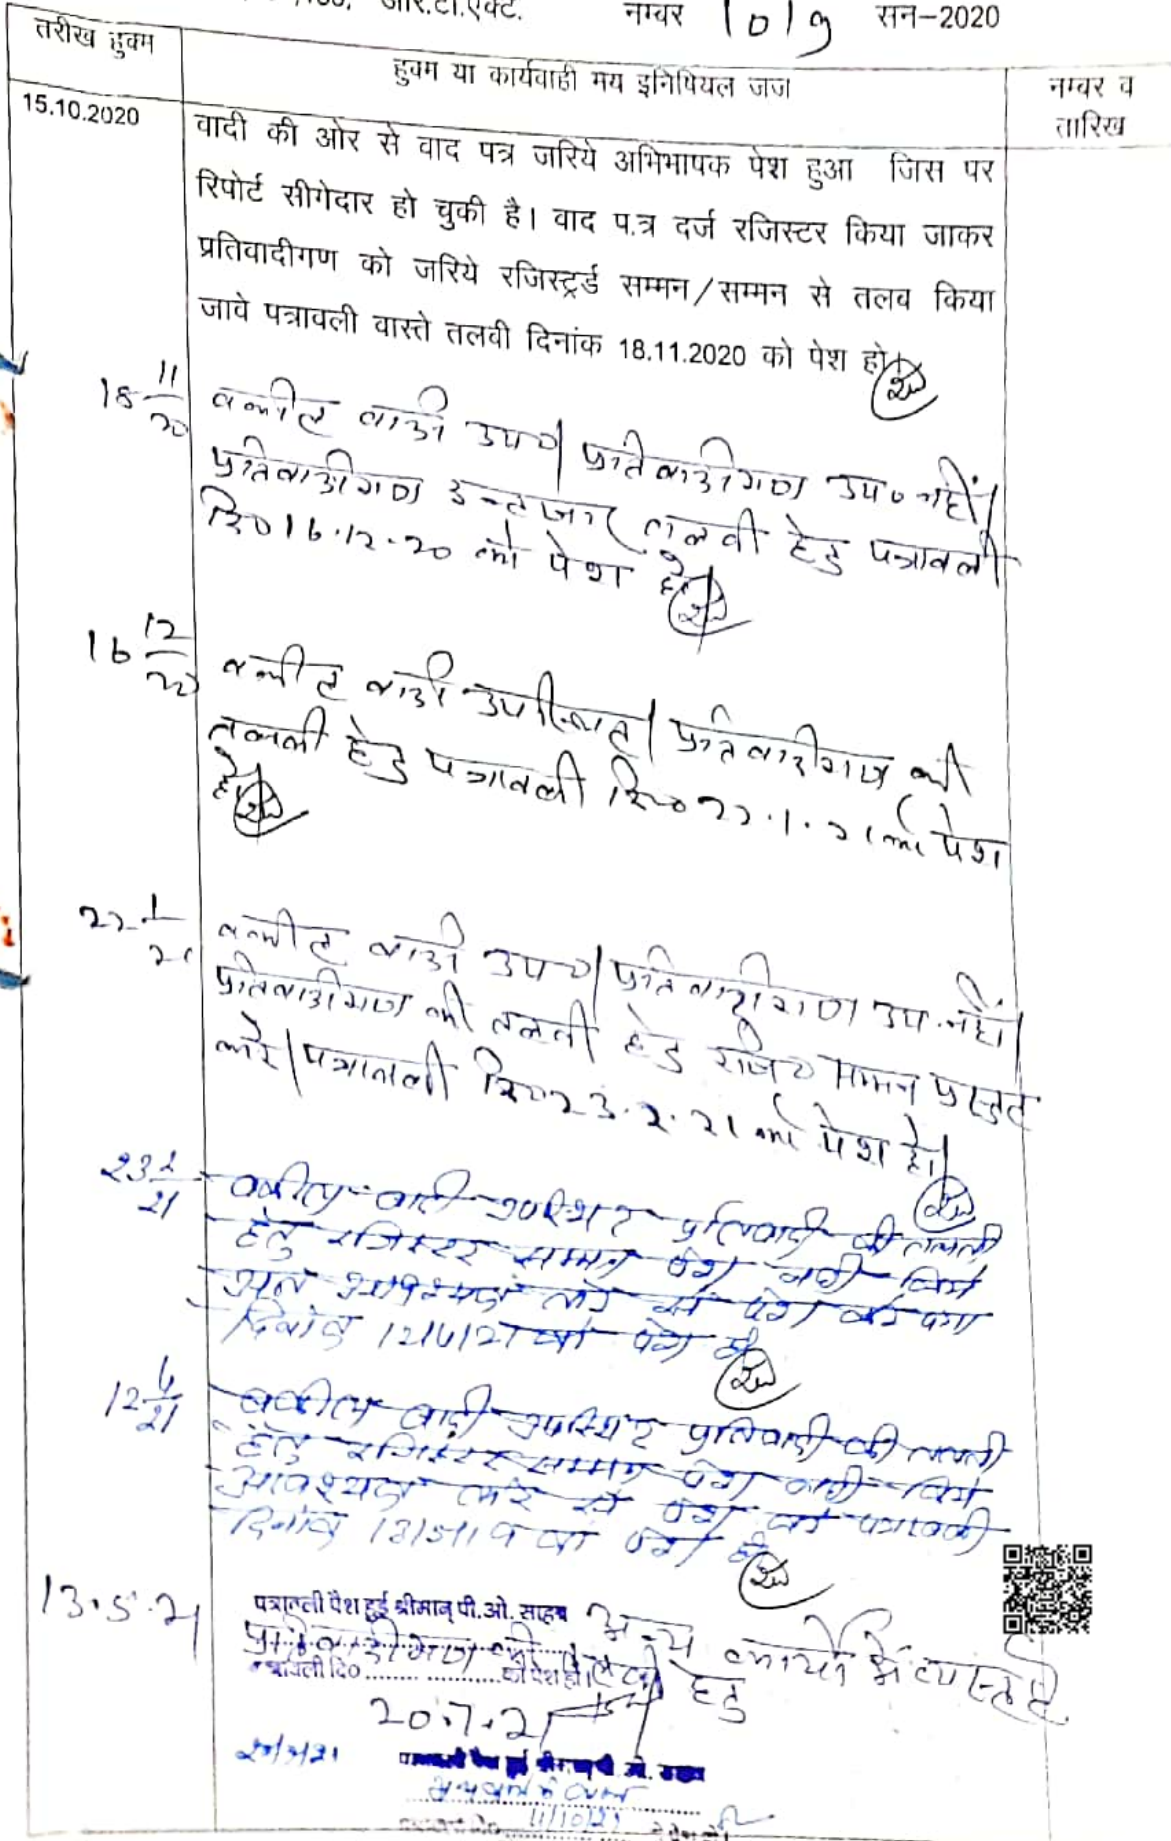 आर.टी.एक्ट. नम्बर 109 सन-2020
तरीख हुक्म
हुक्म या कार्यवाही मय इनिषियल जज
नम्बर व
तारिख
15.10.2020
वादी की ओर से वाद पत्र जरिये अभिभाषक पेश हुआ जिस पर
रिपोर्ट सीगेदार हो चुकी है। वाद प.त्र दर्ज रजिस्टर किया जाकर
प्रतिवादीगण को जरिये रजिस्ट्रर्ड सम्मन/सम्मन से तलव किया
जावे पत्रावली वास्ते तलवी दिनांक 18.11.2020 को पेश हो।
18 11/20
वकील वादी उप० | प्रतिवादीगण उप० नहीं|
प्रतिवादीगण इन्तजार तलवी हेतु पत्रावली
दि० 16.12.20 को पेश हो|
16 12/20
वकील वादी उपस्थित | प्रतिवादीगण की
तलवी हेतु पत्रावली दि० 22.1.21 को पेश
हो|
22 1/21
वकील वादी उप० | प्रतिवादीगण उप. नहीं|
प्रतिवादीगण की तलवी हेतु रजि० सम्मन प्रस्तुत
करे | पत्रावली दि० 23.2.21 को पेश हो|
23 2/21
वकील वादी उपस्थित प्रतिवादी की तलवी
हेतु रजिस्टर सम्मन पेश नही किये
पेश
दिनांक 12/4/21 को पेश हो
12 4/21
वकील वादी उपस्थित प्रतिवादी की तलवी
हेतु रजिस्टर सम्मन पेश नही किये
आवश्यक पेश पत्रावली
दिनांक को पेश हो
13.5.21
पत्रावली पेश हुई श्रीमान् पी.ओ. साहब अन्य कार्यो में व्यस्त है
प्रतिवादीगण की तलवी हेतु
पत्रावली दि० को पेश हो।
20.7.21
पत्रावली पेश हुई श्रीमान् पी. ओ. साहब
11/10/21